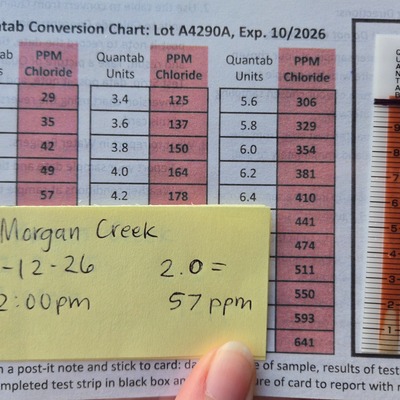 tab Conversion Chart: Lot A4290A, Exp. 10/2026
PPM Chloride Quantab Units PPM Chloride Quantab Units PPM Chloride
29 3.4 125 5.6 306
35 3.6 137 5.8 329
42 3.8 150 6.0 354
49 4.0 164 6.2 381
57 4.2 178 6.4 410
441
474
511
550
593
641
Morgan Creek
-12-26 2.0=
2:00pm 57 ppm
QUANTAB
9
8
7
6
5
4
3
2
1
n a post-it note and stick to card: da e of sample, results of test
mpleted test strip in black box an ure of card to report with